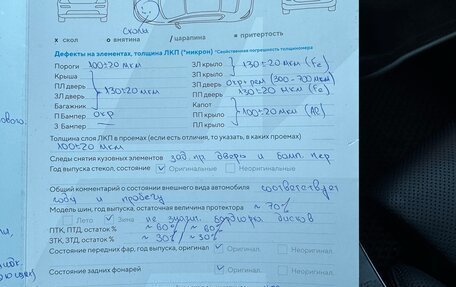 сколы
x скол   o вмятина   / царапина   ≡ притертость
Дефекты на элементах, толщина ЛКП (*микрон) *Свойственная погрешность толщиномера
Пороги 100±20 мкм
ЗЛ крыло } 130±20 мкм (Fe)
Крыша
ЗП крыло
ПЛ дверь } 130±20 мкм
ЗП дверь окр+рем (300-700 мкм)
ЗЛ дверь
ПП дверь 130±20 мкм (Fe)
Багажник
Капот
П Бампер окр
ПП крыло } 100±20 мкм (Al)
З Бампер —
ПЛ крыло
Толщина слоя ЛКП в проемах (если есть отличия, то указать, в каких проемах)
100±20 мкм
Следы снятия кузовных элементов зад пр дверь и бамп. пер
Год выпуска стекол, состояние ✓ Оригинальные Неоригинальные
Общий комментарий о состоянии внешнего вида автомобиля соответствует
году и пробегу
Модель шин, год выпуска, остаточная величина протектора ~ 70%
Лето ✓ Зима не значит. бордюрка дисков
ПТК, ПТД, остаток % ~ 60% / ~ 60%
ЗТК, ЗТД, остаток % ~ 30% / ~ 30%
Состояние передних фар, год выпуска, оригинал ✓ Оригинал. Неоригинал.
Состояние задних фонарей ✓ Оригинал. Неоригинал.